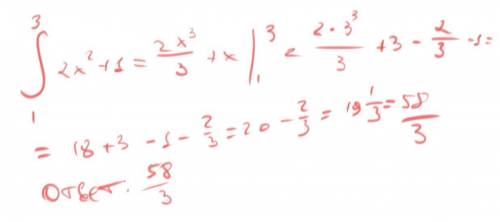 ∫₁³ 2x² + 1 = 2x³/3 + x |₁³ = 2·3³/3 + 3 - 2/3 - 1 =
= 18 + 3 - 1 - 2/3 = 20 - 2/3 = 19 1/3 = 58/3
Ответ. 58/3